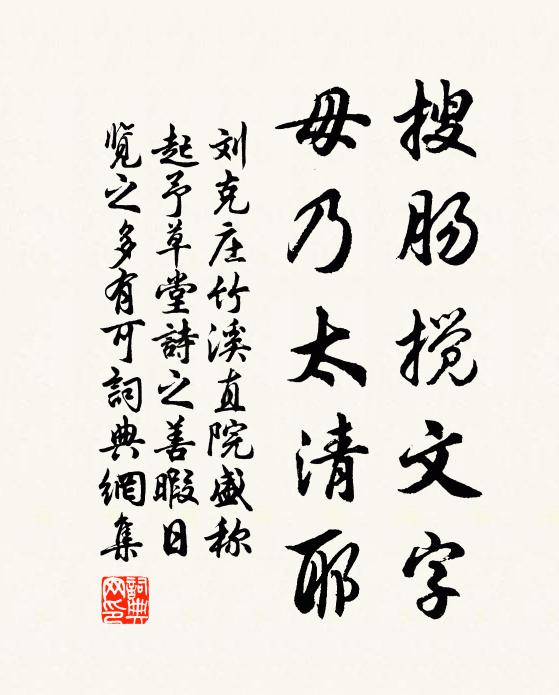 搜肠搅文字
毋乃太清耶
刘克庄竹溪直院盛称
起予草堂詩之善暇日
览之多有可詞典網集
詞典网印